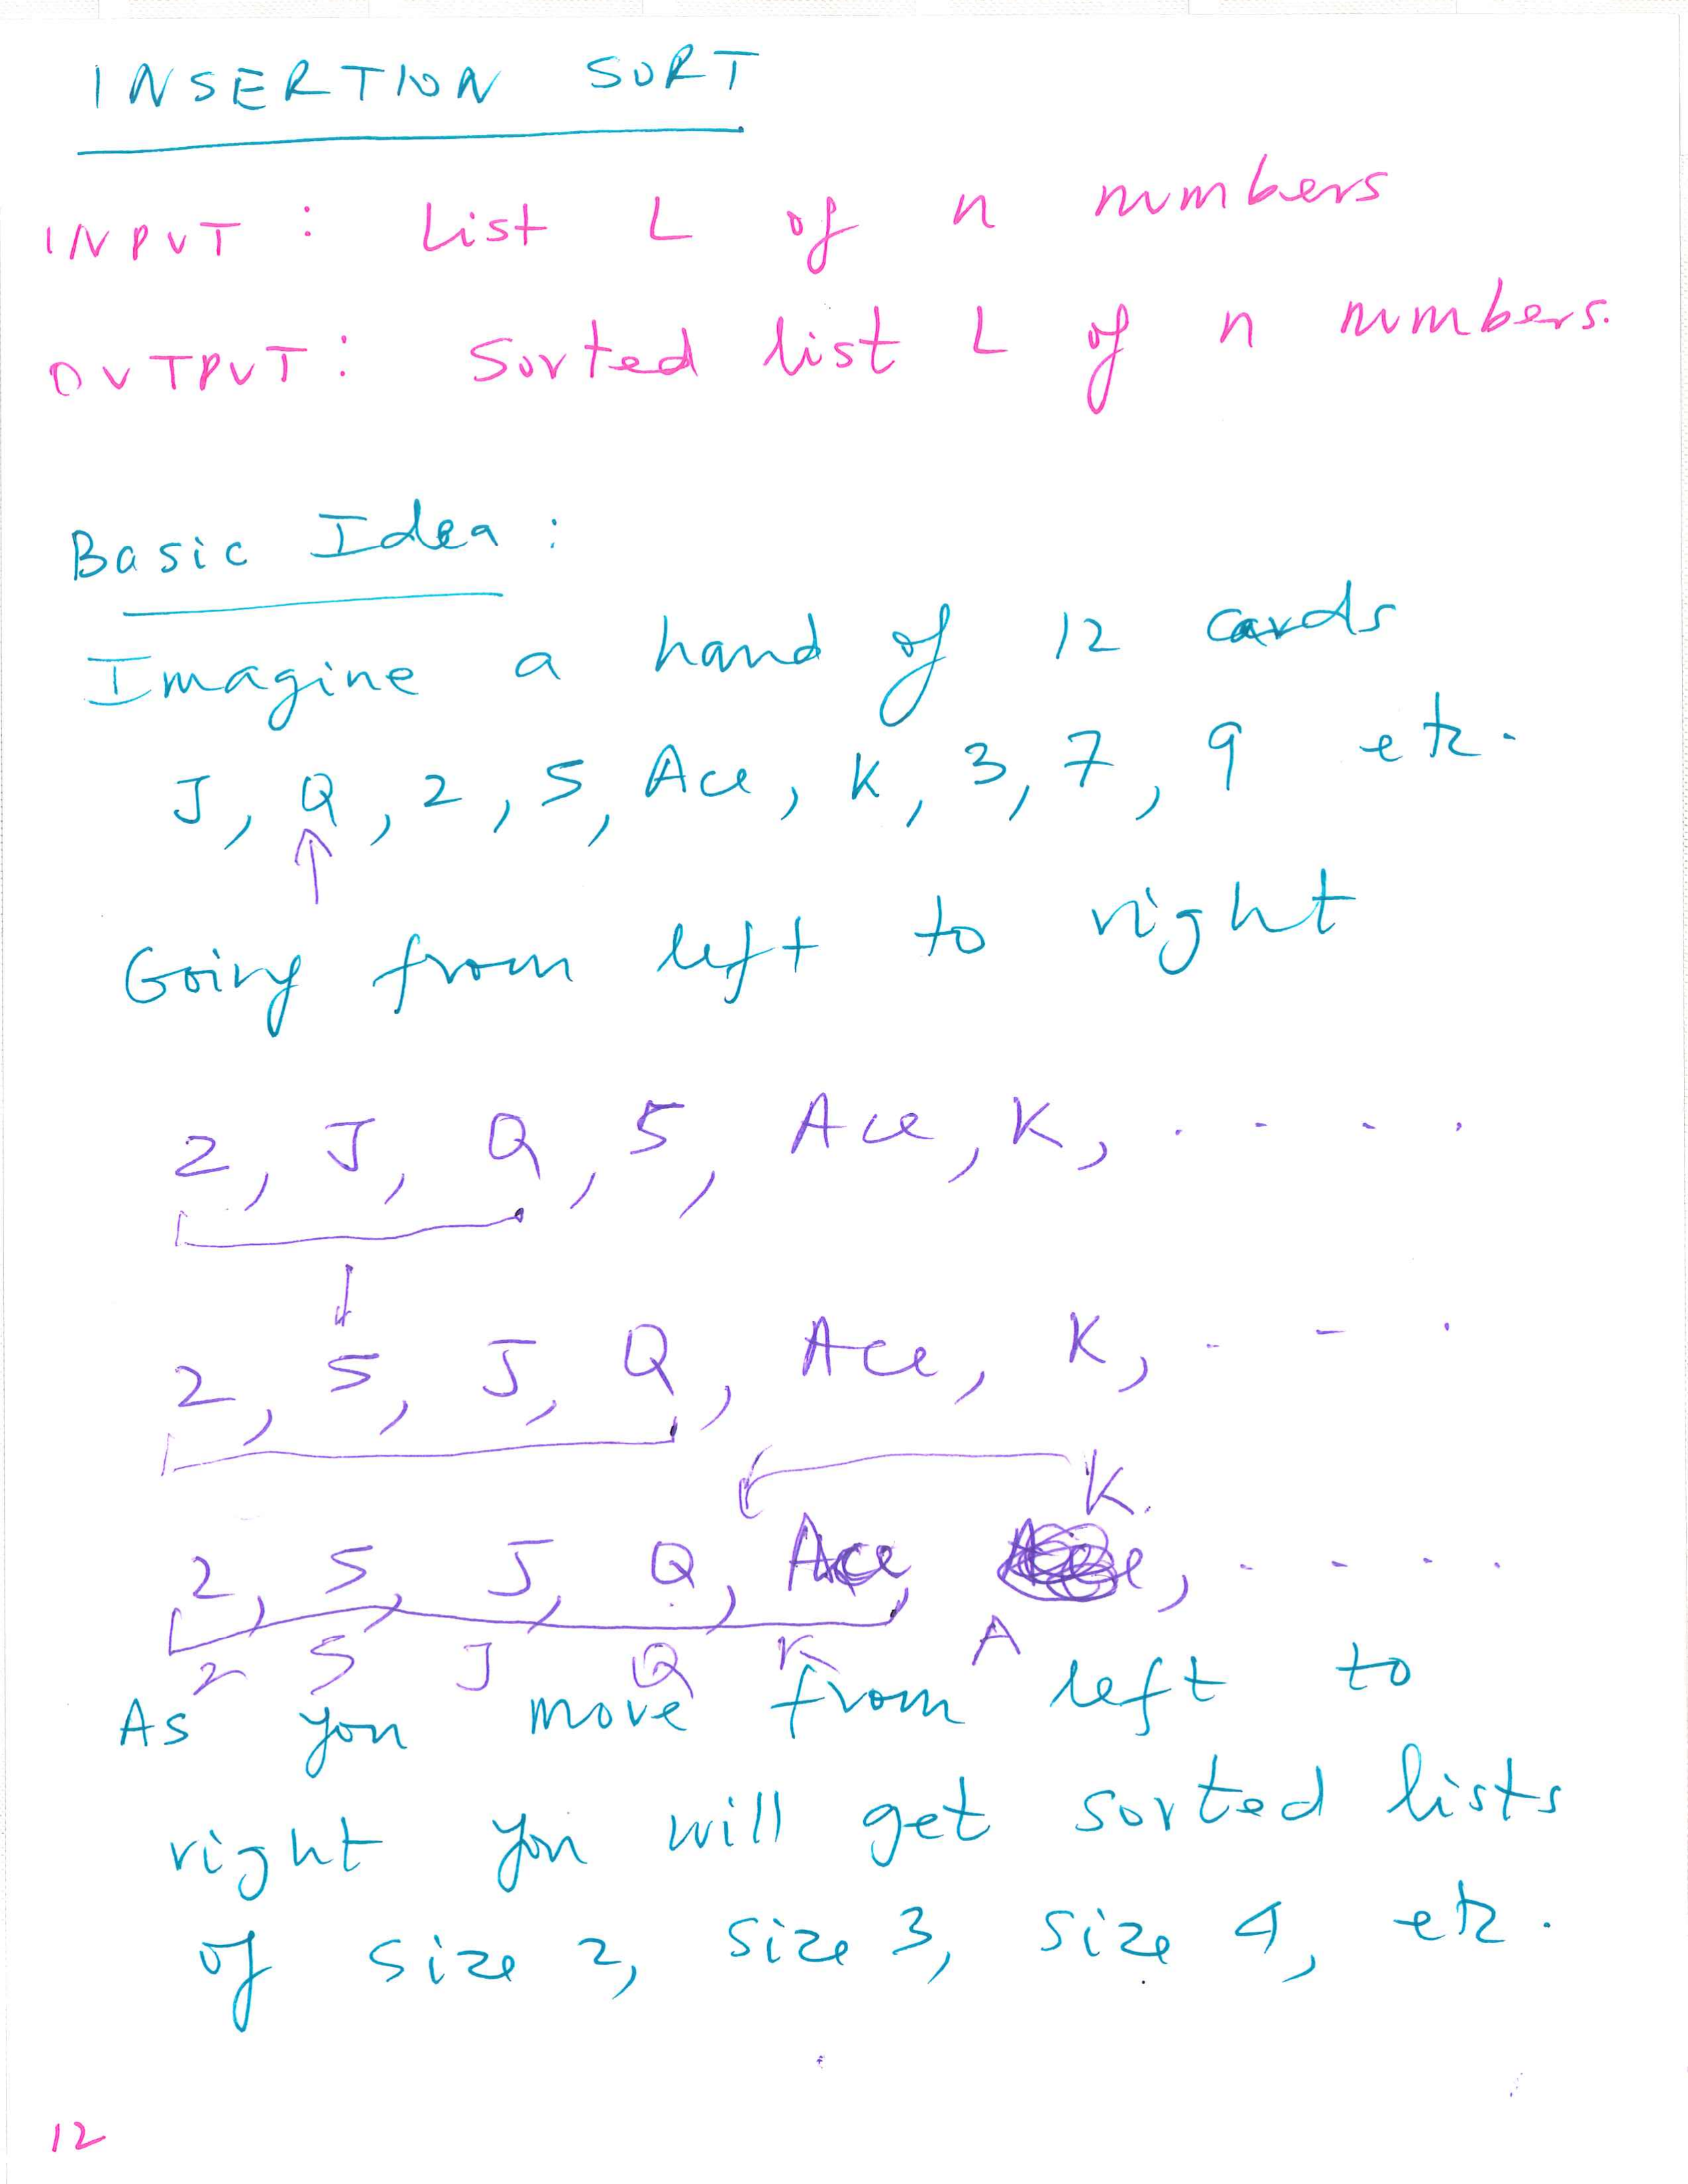 INSERTION SORT
INPUT : List L of n numbers
OUTPUT : Sorted list L of n numbers.
Basic Idea :
Imagine a hand of 12 cards
J, Q, 2, 5, Ace, K, 3, 7, 9 etc.
Going from left to right
2, J, Q, 5, Ace, K, . - - .
2, 5, J, Q, Ace, K, - - .
K.
2, 5, J, Q, Ace, , - - - .
2 5 J Q K A
As you move from left to
right you will get sorted lists
of size 2, size 3, size 4, etc.
12